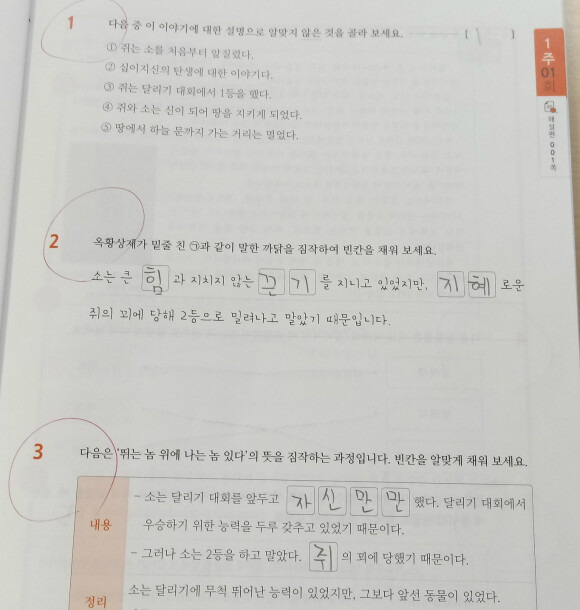 1 다음 중 이 이야기에 대한 설명으로 알맞지 않은 것을 골라 보세요. [ 1 ]
① 쥐는 소를 처음부터 앞질렀다.
② 십이지신의 탄생에 대한 이야기다.
③ 쥐는 달리기 대회에서 1등을 했다.
④ 쥐와 소는 신이 되어 땅을 지키게 되었다.
⑤ 땅에서 하늘 문까지 가는 거리는 멀었다.
1
주
01
회
해설편 001쪽
2 옥황상제가 밑줄 친 ㉠과 같이 말한 까닭을 짐작하여 빈칸을 채워 보세요.
소는 큰 힘 과 지치지 않는 끈 기 를 지니고 있었지만, 지 혜 로운
쥐의 꾀에 당해 2등으로 밀려나고 말았기 때문입니다.
3 다음은 '뛰는 놈 위에 나는 놈 있다'의 뜻을 짐작하는 과정입니다. 빈칸을 알맞게 채워 보세요.
내용
- 소는 달리기 대회를 앞두고 자 신 만 만 했다. 달리기 대회에서
우승하기 위한 능력을 두루 갖추고 있었기 때문이다.
- 그러나 소는 2등을 하고 말았다. 쥐 의 꾀에 당했기 때문이다.
정리
소는 달리기에 무척 뛰어난 능력이 있었지만, 그보다 앞선 동물이 있었다.